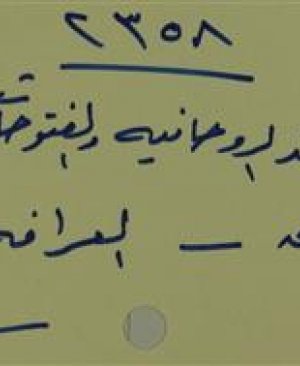 ٢٣٥٨
الروحانيه والفتوحات
— العرافه